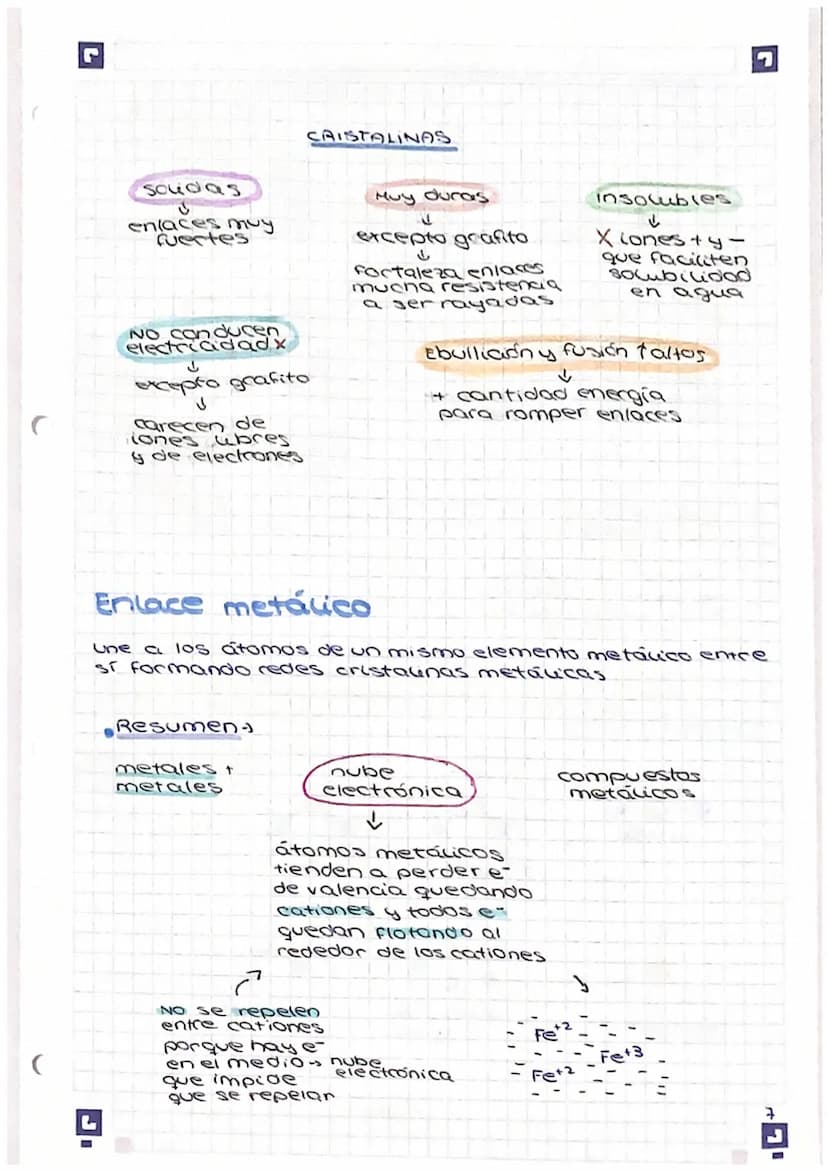 CRISTALINAS
sólidas
↓
enlaces muy
fuertes
Muy duras
↓
excepto grafito
↓
Fortaleza enlaces
mucha resistencia
a ser rayadas
insolubles
↓
X iones + y -
que faciliten
solubilidad
en agua
NO conducen
electricidad x
↓
excepto grafito
↓
carecen de
iones libres
y de electrones
Ebullición y fusión ↑ altos
↓
+ cantidad energía
para romper enlaces
Enlace metálico
une a los átomos de un mismo elemento metálico entre
sí formando redes cristalinas metálicas
• Resumen →
metales +
metales
nube
electrónica
↓
átomos metálicos
tienden a perder e-
de valencia quedando
cationes y todos e-
quedan flotando al
rededor de los cationes
compuestos
metálicos
NO se repelen
entre cationes
porque hay e-
en el medio → nube
electrónica
que impide
que se repelan
Fe+2
Fe+3
Fe+2
7